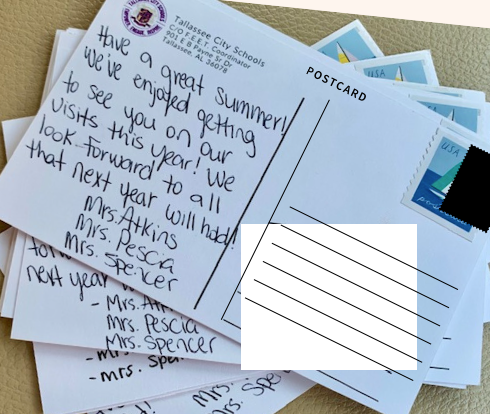 Tallassee City Schools
C/O F.E.E.T. Coordinator
901 E B Payne Sr Dr
Tallassee, AL 36078
Have a great summer!
We've enjoyed getting
to see you on our
visits this year! We
look forward to all
that next year will hold!
Mrs. Atkins
Mrs. Pescia
Mrs. Spencer
POSTCARD
USA
USA
next year
- Mrs. Atk
Mrs. Pescia
Mrs. Spencer
- Mrs. Spe